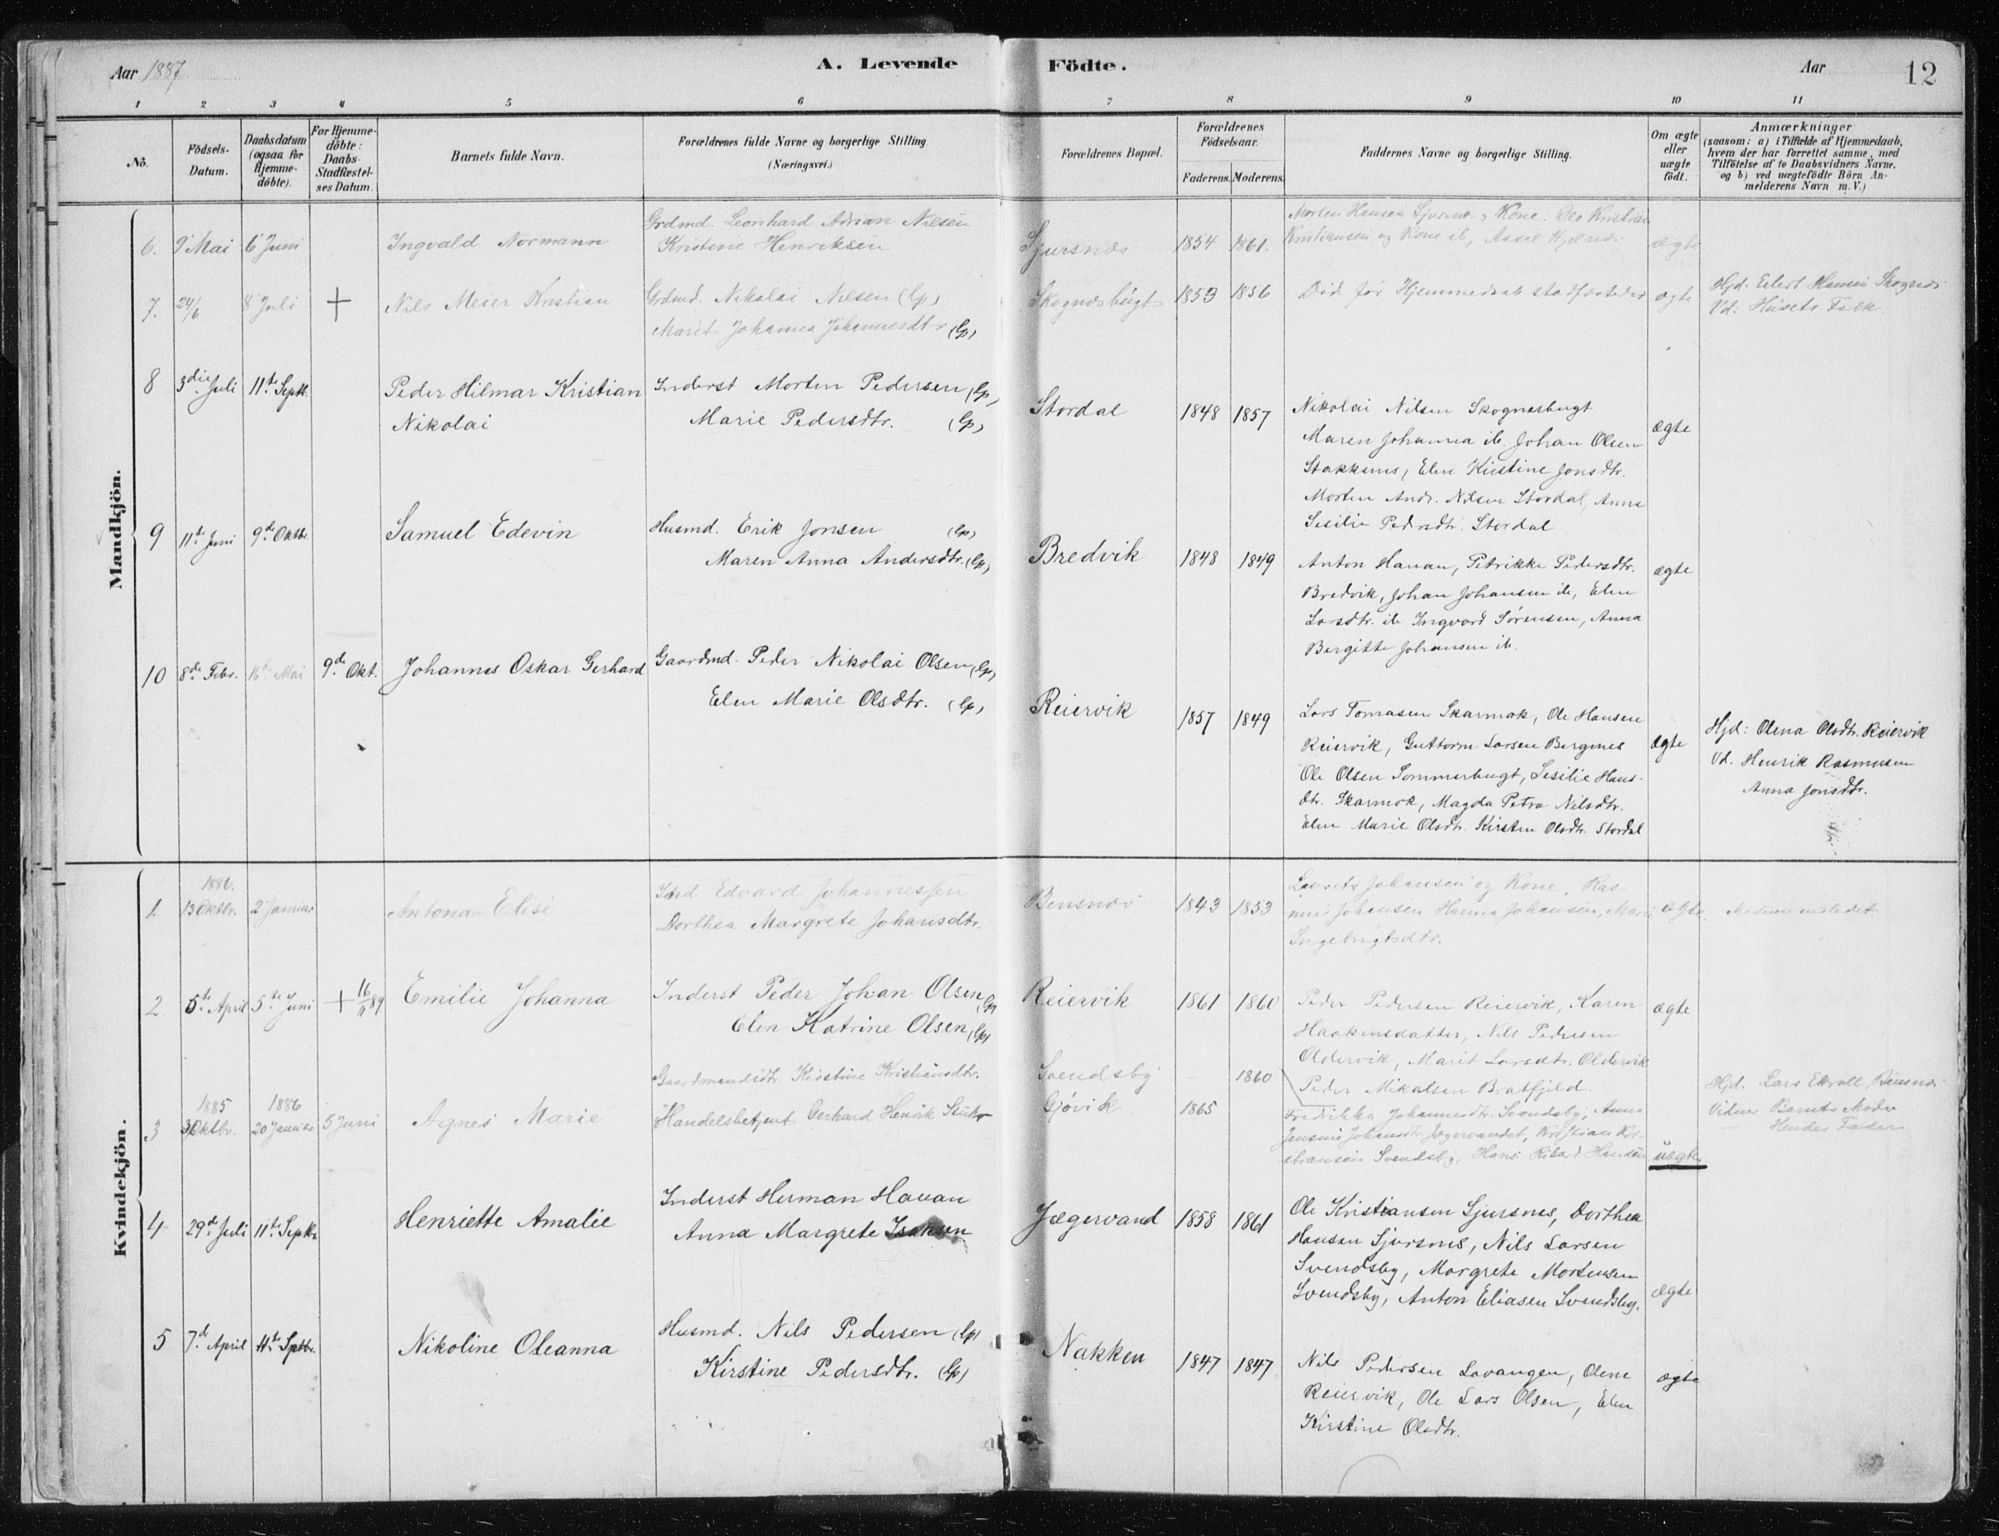 Aar 1887
A. Levende Födte.
Aar
12
1 2 3 4 5 6 7 8 9 10 11
No.
Födsels-
Datum.
Daabsdatum
(ogsaa for
Hjemme-
döbte).
For Hjemme-
döbte:
Daabs-
Stadfæstel-
ses Datum.
Barnets fulde Navn.
Forældrenes fulde Navne og borgerlige Stilling
(Næringsvei.)
Forældrenes Bopæl.
Forældrenes
Födselsaar.
Faderens. Moderens.
Faddernes Navne og borgerlige Stilling.
Om ægte
eller
uægte
födt.
Anmærkninger
(saasom: a) i Tilfælde af Hjemmedaab,
hvem der har forrettet samme, med
Tilföielse af to Daabsvidners Navne,
og b) ved uægtefödte Börn An-
melderens Navn m. V.)
Mandkjön.
6. 9 Mai 6 Juni
Ingvald Normann
Grdmd. Leonhard Adrian Nilsen
Kristine Henriksen
Sjursnæs 1854 1861.
Morten Hansen Sjursnæs & Kone. Ole Kristian
Kristiansen og Kone ib,
ægte
7. 24/6 8 Juli +
Nils Meier Kristian
Grdmd. Nikolai Nilsen (Lp)
Marit Johanna Johannesdtr (Lp)
Skognæsbugt 1853 1856
Død før Hjemmedaab stadfæstedes
ægte
Hjd: Eilert Hansen Skognæs
Vd: Husets Folk.
8 3die Juli 11te Septb.
Peder Hilmar Kristian
Nikolai
Inderst Morten Pedersen (Lp)
Marie Pedersdtr. (Lp)
Stordal 1848 1857
Nikolai Nilsen Skognesbugt
Maren Johanna ib. Johan Olsen
Stakkenes, Elen Kirstine Jonsdtr.
Morten Andr. Nilsen Stordal, Anna
Sesilie Pedersdtr. Stordal
ægte
9 11te Juni 9de Oktbr.
Samuel Edevin
Husmd. Erik Jonsen (Lp)
Maren Anna Andersdtr. (Lp)
Bredvik 1848 1849
Anton Hanan, Petrikke Pedersdtr.
Bredvik, Johan Johansen ib, Elen
Larsdtr. ib Ingvard Sørensen, Anna
Bergitte Johansen ib.
ægte
10 8de Febr. 16de Mai 9de Okt.
Johannes Oskar Gerhard
Gaardmd. Peder Nikolai Olsen (Lp)
Elen Marie Olsdtr. (Lp)
Reiervik 1857 1849
Lars Tomasen Skarmok, Ole Hansen
Reiervik, Guttorm Larsen Bergnes
Ole Olsen Sommerbugt, Sesilie Hans-
dtr. Skarmok, Magda Petra Nilsdtr.
Elen Marie Olsdtr. Kirsten Olsdtr. Stordal
ægte
Hjd: Olena Olsdtr. Reiervik
Vd. Henrik Rasmusen
Anna Jonsdtr.
Kvindekjön.
1886.
1. 13 Oktbr. 2 Januar
Antona Elise
Edvard Johannessen
Dorthea Margrete Johansdtr.
Bensnæs 1843 1853
Laurits Johansen og Kone. Ras-
mus Johansen Hanna Johansen, Marie
Ingebrigtsdtr.
ægte
Moderen
2 5te April 5te Juni + 16/11 89
Emilie Johanna
Inderst Peder Johan Olsen (Lp)
Elen Katrine Olsen (Lp)
Reiervik 1861 1860
Peder Pedersen Reiervik, Karen
Haakensdatter, Nils Pedersen
Oldervik, Marit Larsdtr. Oldervik
Peder Mikalsen Bratfjeld.
ægte
3 1885 3 Oktbr. 1886 20 Januar 5 Juni
Agnes Marie
Gaardmandsdtr. Kirstine Kristiansdtr.
Handelsbetjent Gerhard Henrik
Svendsby 1860
Gjøvik 1865
Fredrikka Johannesdtr. Svendsby, Anna
Jensine Johansdtr Jægervandet, Kristian Kri-
stiansen Svendsby, Hans Rikard Hansen
uægte
Hjd. Lars Bensnæs
Vidner Barnets Moder
Hendes Fader
4 29de Juli 11te Septbr
Henriette Amalie
Inderst Herman Hanan
Anna Margrete Isaksen
Jægervand 1858 1861
Ole Kristiansen Sjursnes, Dorthea
Hansen Sjursnes, Nils Larsen
Svendsby, Margrete Mortensen
Svendsby, Anton Eliasen Svendsby.
ægte
5 7de April 11te Septbr.
Nikoline Oleanna
Husmd. Nils Pedersen (Lp)
Kirstine Pedersdtr. (Lp)
Nakken 1847 1847
Nils Pedersen Lavangen, Olene
Reiervik, Ole Lars Olsen, Elen
Kirstine Olsdtr.
ægte